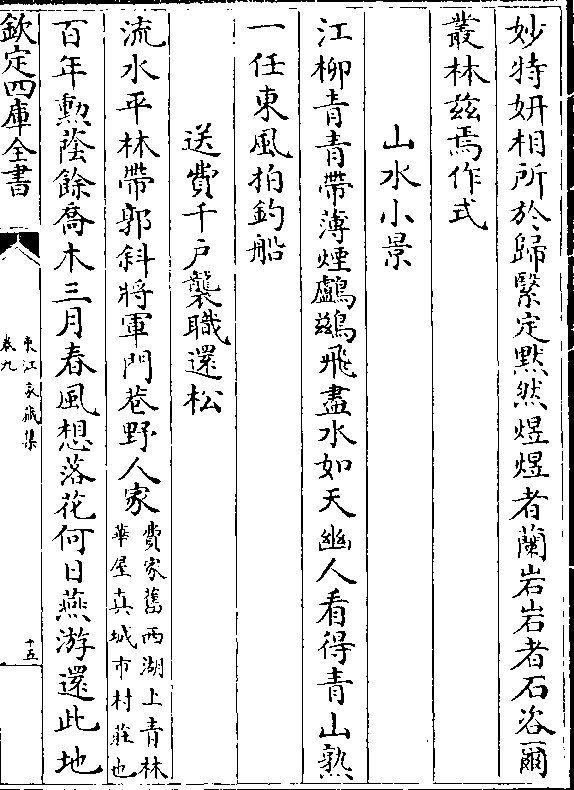 妙特妍相所於歸繄定黙然煜煜者蘭岩岩者石咨爾
叢林兹焉作式
山水小景
江柳青青帶薄煙鸕鷀飛盡水如天幽人看得青山熟
一任東風拍釣船
送費千户襲職還松
流水平林帶郭斜將軍門巷野人家費家舊西湖上青林
華屋真城市村莊也
百年勲蔭餘喬木三月春風想落花何日燕游還此地
欽定四庫全書
東江家藏集
卷九
十五